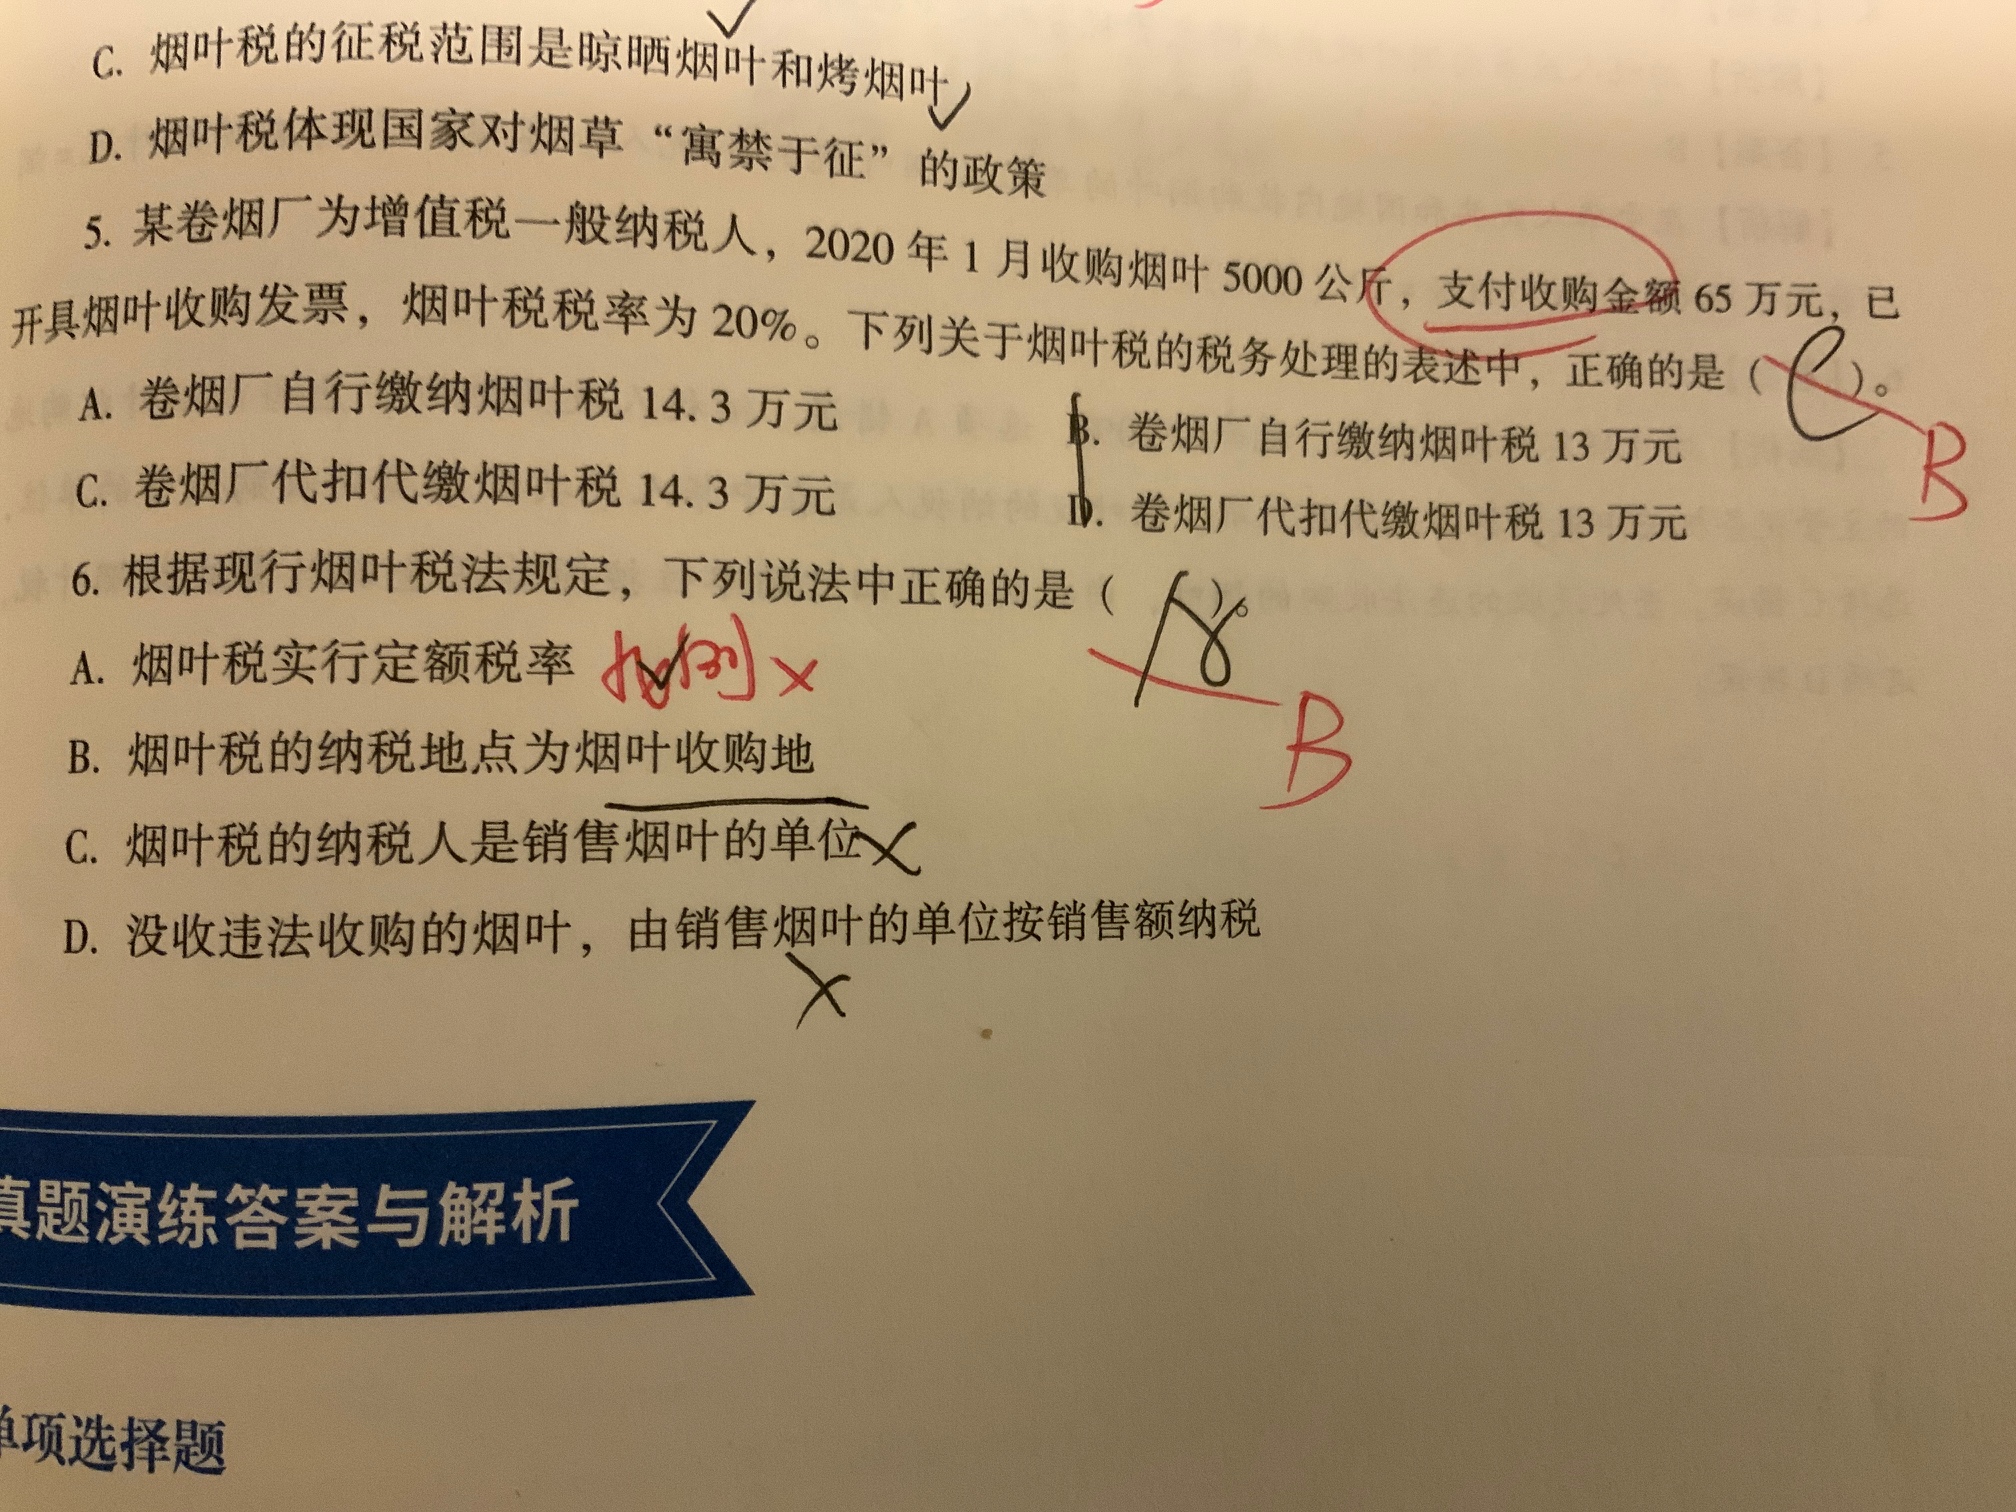 C. 烟叶税的征税范围是晾晒烟叶和烤烟叶
D. 烟叶税体现国家对烟草“寓禁于征”的政策
5. 某卷烟厂为增值税一般纳税人，2020 年 1 月收购烟叶 5000 公斤，支付收购金额 65 万元，已
开具烟叶收购发票，烟叶税税率为 20%。下列关于烟叶税的税务处理的表述中，正确的是（C）。
B
A. 卷烟厂自行缴纳烟叶税 14.3 万元
B. 卷烟厂自行缴纳烟叶税 13 万元
C. 卷烟厂代扣代缴烟叶税 14.3 万元
D. 卷烟厂代扣代缴烟叶税 13 万元
6. 根据现行烟叶税法规定，下列说法中正确的是（A）。
B
A. 烟叶税实行定额税率 比例 ×
B. 烟叶税的纳税地点为烟叶收购地
C. 烟叶税的纳税人是销售烟叶的单位 ×
D. 没收违法收购的烟叶，由销售烟叶的单位按销售额纳税
×
真题演练答案与解析
单项选择题